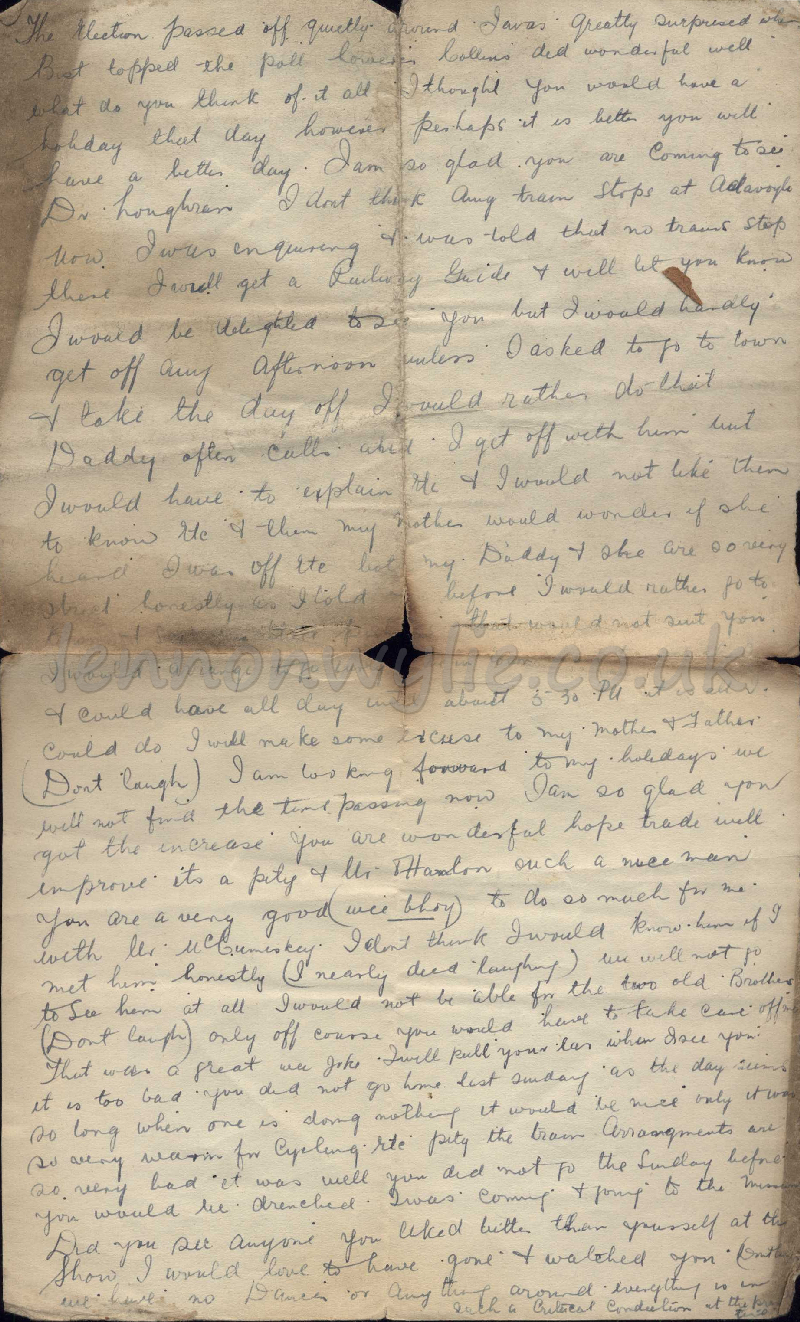 The Election passed off quietly around I was greatly surprised when
Best topped the poll however Collins did wonderful well
what do you think of it all I thought you would have a
holiday that day however perhaps it is better you will
have a better day. I am so glad you are coming to see
Dr. Loughran I dont think any train stops at Adavoyle
now I was enquiring & was told that no trains stop
there I will get a Railway Guide & will let you know
I would be delighted to see you but I would hardly
get off any afternoon unless I asked to go to town
& take the day off I would rather do that
Daddy often calls and I get off with him but
I would have to explain etc & I would not like them
to know etc & then my Mother would wonder if she
heard I was off etc but my Daddy & she are so very
strict honestly as I told before I would rather go to
that would not suit you
lennonwylie.co.uk
I would
& could have all day until about 5-30 PM it is
could do I will make some excuse to my Mother & Father
(Dont laugh) I am looking forward to my holidays we
will not find the time passing now I am so glad you
got the increase you are wonderful hope trade will
improve its a pity & Mr. OHanlon such a nice man
you are a very good (wee bhoy) to do so much for me
with Mr. McCumiskey. I dont think I would know him if I
met him honestly (I nearly died laughing) we will not go
to see him at all I would not be able for the two old Brothers
(Dont laugh) only off course you would have to take care off me
That was a great wee Joke I will pull your ears when I see you
it is too bad you did not go home last Sunday as the day seems
so long when one is doing nothing it would be nice only it was
so very warm for Cycling etc pity the train Arrangments are
so very bad it was well you did not go the Sunday before
you would be drenched I was coming & going to the Mission
Did you see anyone you liked better than yourself at the
Show I would love to have gone & watched you
we have no Dances or anything around everything is in
such a Critical Condition at the